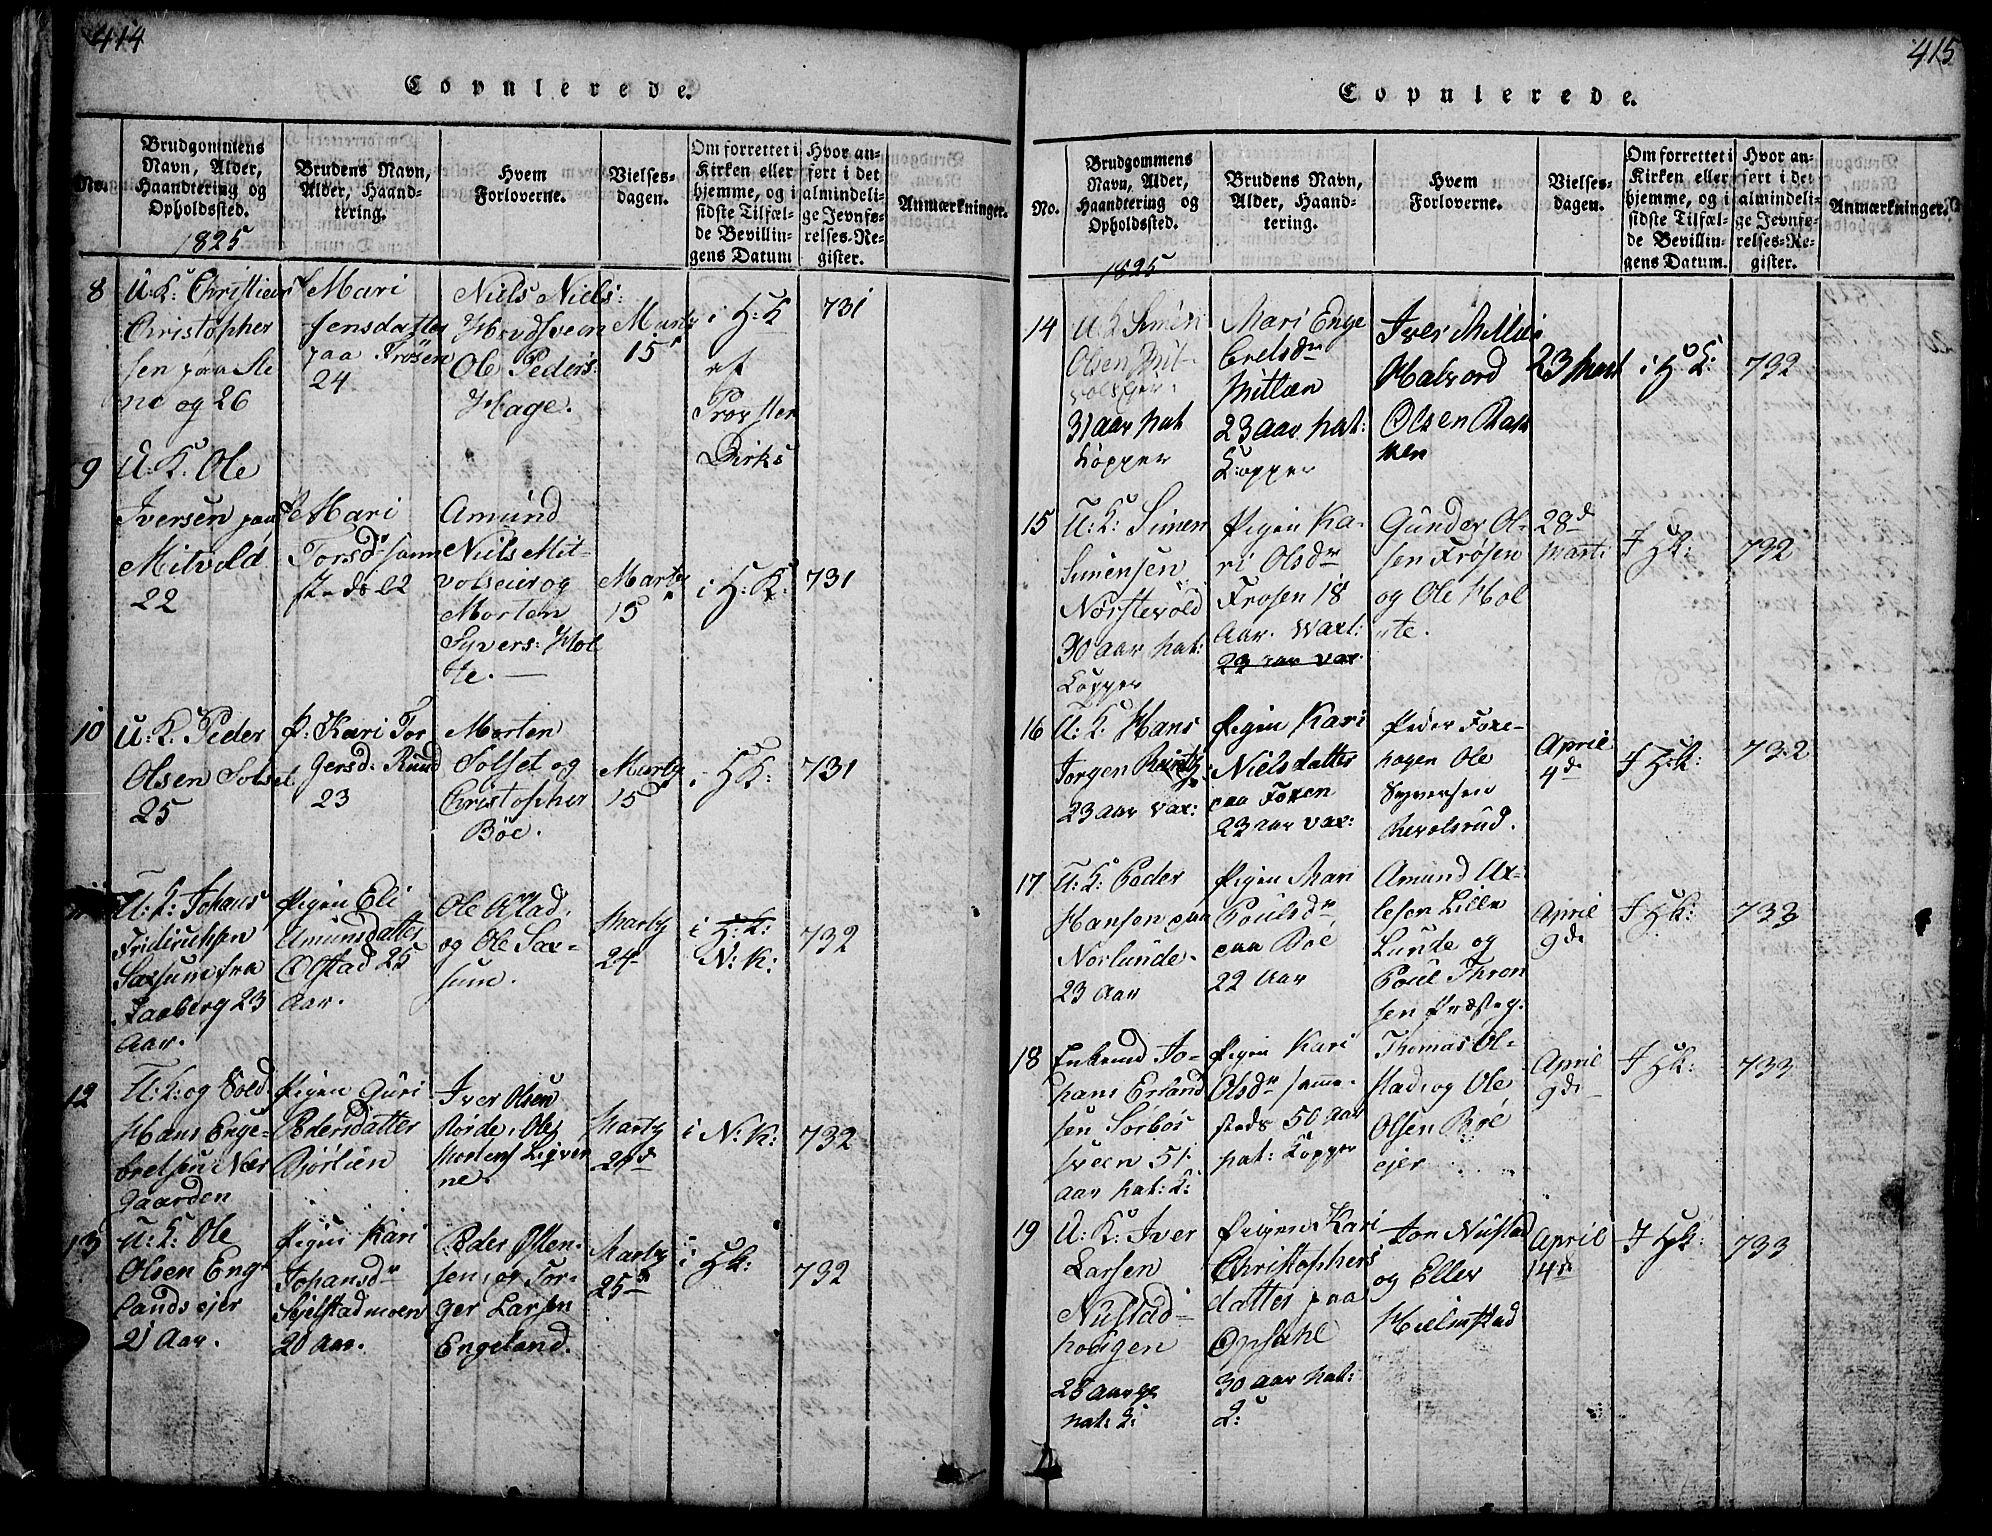 414
Copulerede.
No.
Brudgommens
Navn, Alder,
Haandtering og
Opholdssted.
Brudens Navn,
Alder, Haand-
tering.
Hvem
Forloverne.
Vielses-
dagen.
Om forrettet i
Kirken eller
hjemme, og i
sidste Tilfæl-
de Bevillin-
gens Datum
Hvor an-
ført i det
almindeli-
ge Jevnfø-
relses-Re-
gister.
Anmærkninger.
1825
8
U: K: Christian
Christopher
sen paa
og 26
Mari
Jensdatter
paa Frösen
24
Niels Niels:
Ole Peders:
Hage.
Marty
15
i H: K
et
Provsten
Dirks
731
9
U: K: Ole
Iversen paa
Mitvold
22
Mari
Torsd: samme
steds 22
Amund
Niels Mit-
og
Morten
Syvers: Hol
te.
Marty
15
i H: K:
731
10
U: K: Peder
Olsen Solset
25
P: Kari Tor
gersd: Rund
23
Morten
Solset og
Christopher
Böe.
Marty
15
i H K:
731
U: K: Johans
Fridrichsen
Saxsum fra
Faaberg 23
Aar.
Pigen Eli
Amunsdatter
Olstad 25
Aar.
Ole
og Ole Sax-
sum.
Marty
24
i H: K:
N: K:
732
12
U: K: og Sold
Hans Enge-
bretsen Nær
gaarden
Pigen Guri
Pedersdatter
Björlien
Iver Olsen
Ole
Mortens
ne.
Marty
i N: K:
732
13
U: K: Ole
Olsen Eng
lands ejer
21 Aar.
Pigen Kari
Johansdr
20 Aar.
Peder Osten-
sen, og Tor-
ger Larsen
Engeland.
Marty
25d
i HK:
732
415
Copulerede.
No.
Brudgommens
Navn, Alder,
Haandtering og
Opholdssted.
Brudens Navn,
Alder, Haand-
tering.
Hvem
Forloverne.
Vielses-
dagen.
Om forrettet i
Kirken eller
hjemme, og i
sidste Tilfæl-
de Bevillin-
gens Datum.
Hvor an-
ført i det
almindeli-
ge Jevnfø-
relses-Re-
gister.
Anmærkninger.
1825
14
U: K Simen
Olsen Mit-
31 aar hat
Kopper
Mari Enge
bretsdr
23 Aar hat:
Kopper
Iver
Halvord
Olsen
23 Mart
i H K:
732
15
U: K: Simen
Simensen
Norstevold
30 Aar hat:
Kopper
Pigen Ka-
ri Olsdr
Frosen 18
Aar. Wax:
22 aar vax
Gunder Ol-
sen Frösen
og Ole Hol
te.
28d
Marti
I HK:
732
16
U: K: Hans
Jörgen
23 Aar vax:
Pigen Kari
Nielsdatter
paa Foxen
22 aar vax:
Peder Foxe-
hogen Ole
Syversen
April
4d.
I HK:
732
17
U: K: Peder
Hansen paa
Norlunde.
23 Aar
Pigen Mari
Poulsdr
paa Böe
22 Aar
Amund Ax-
elsen Lille
Lunde og
Poul Thron
sen Præsteg.
April
9d.
I HK:
733
18
Enkemd Jo-
hans Erland
sen Sörbös
sveen 51
aar hat: K:
Pigen Kari
Olsdr samme-
steds 50 Aar
hat: Kopper
Thomas Ol-
stad, og Ole
Olsen Böe
ejer
April
9d.
I HK:
733
19
U: K: Iver
Larsen
Nustad-
hougen
hat: K:
Pigen Kari
Christophers
datter paa
Opsahl
30 Aar hat:
K:
Jon Nustad
og Ellev
Hielmstad
April
14d
I HK:
733